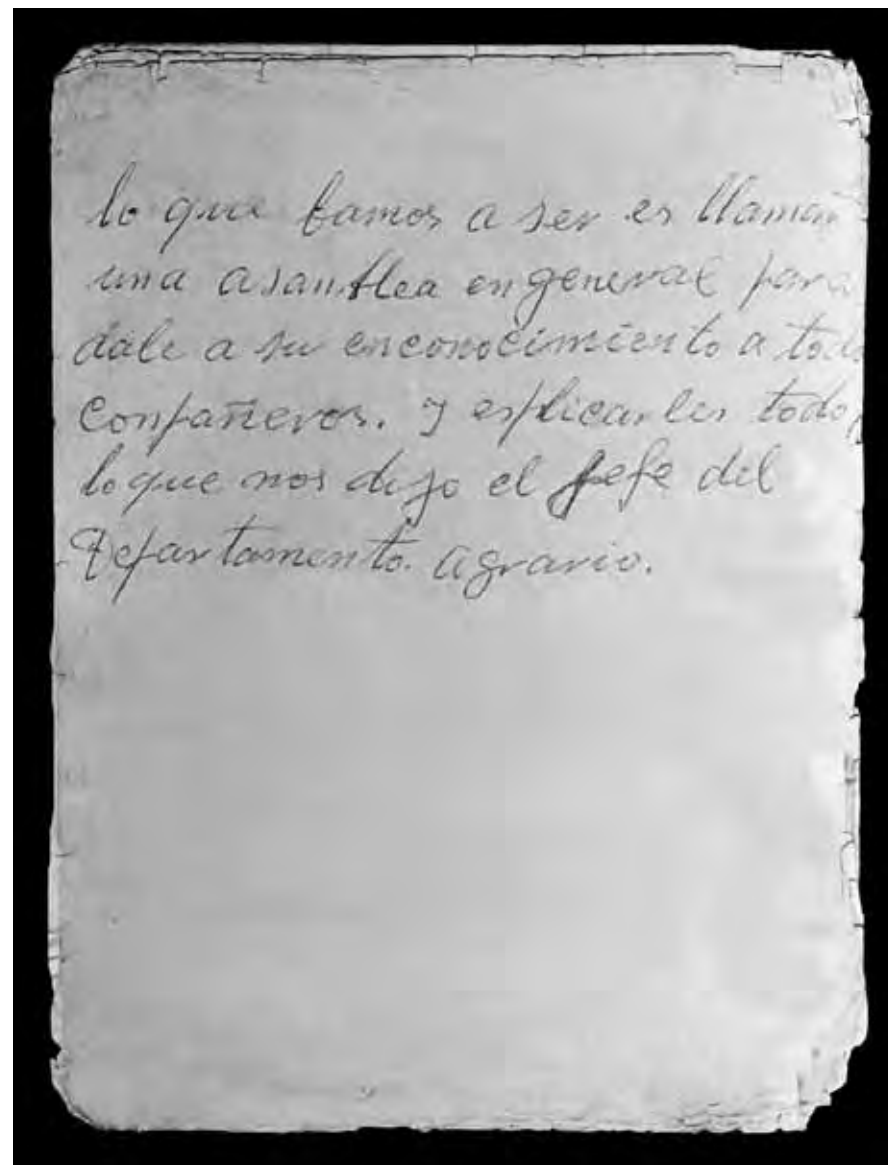 lo que bamos a ser es llamar
una asanblea en general para
dale a su enconocimiento a todo
conpañeros. y esplicarles todo
lo que nos dijo el jefe del
Departamento. agrario.